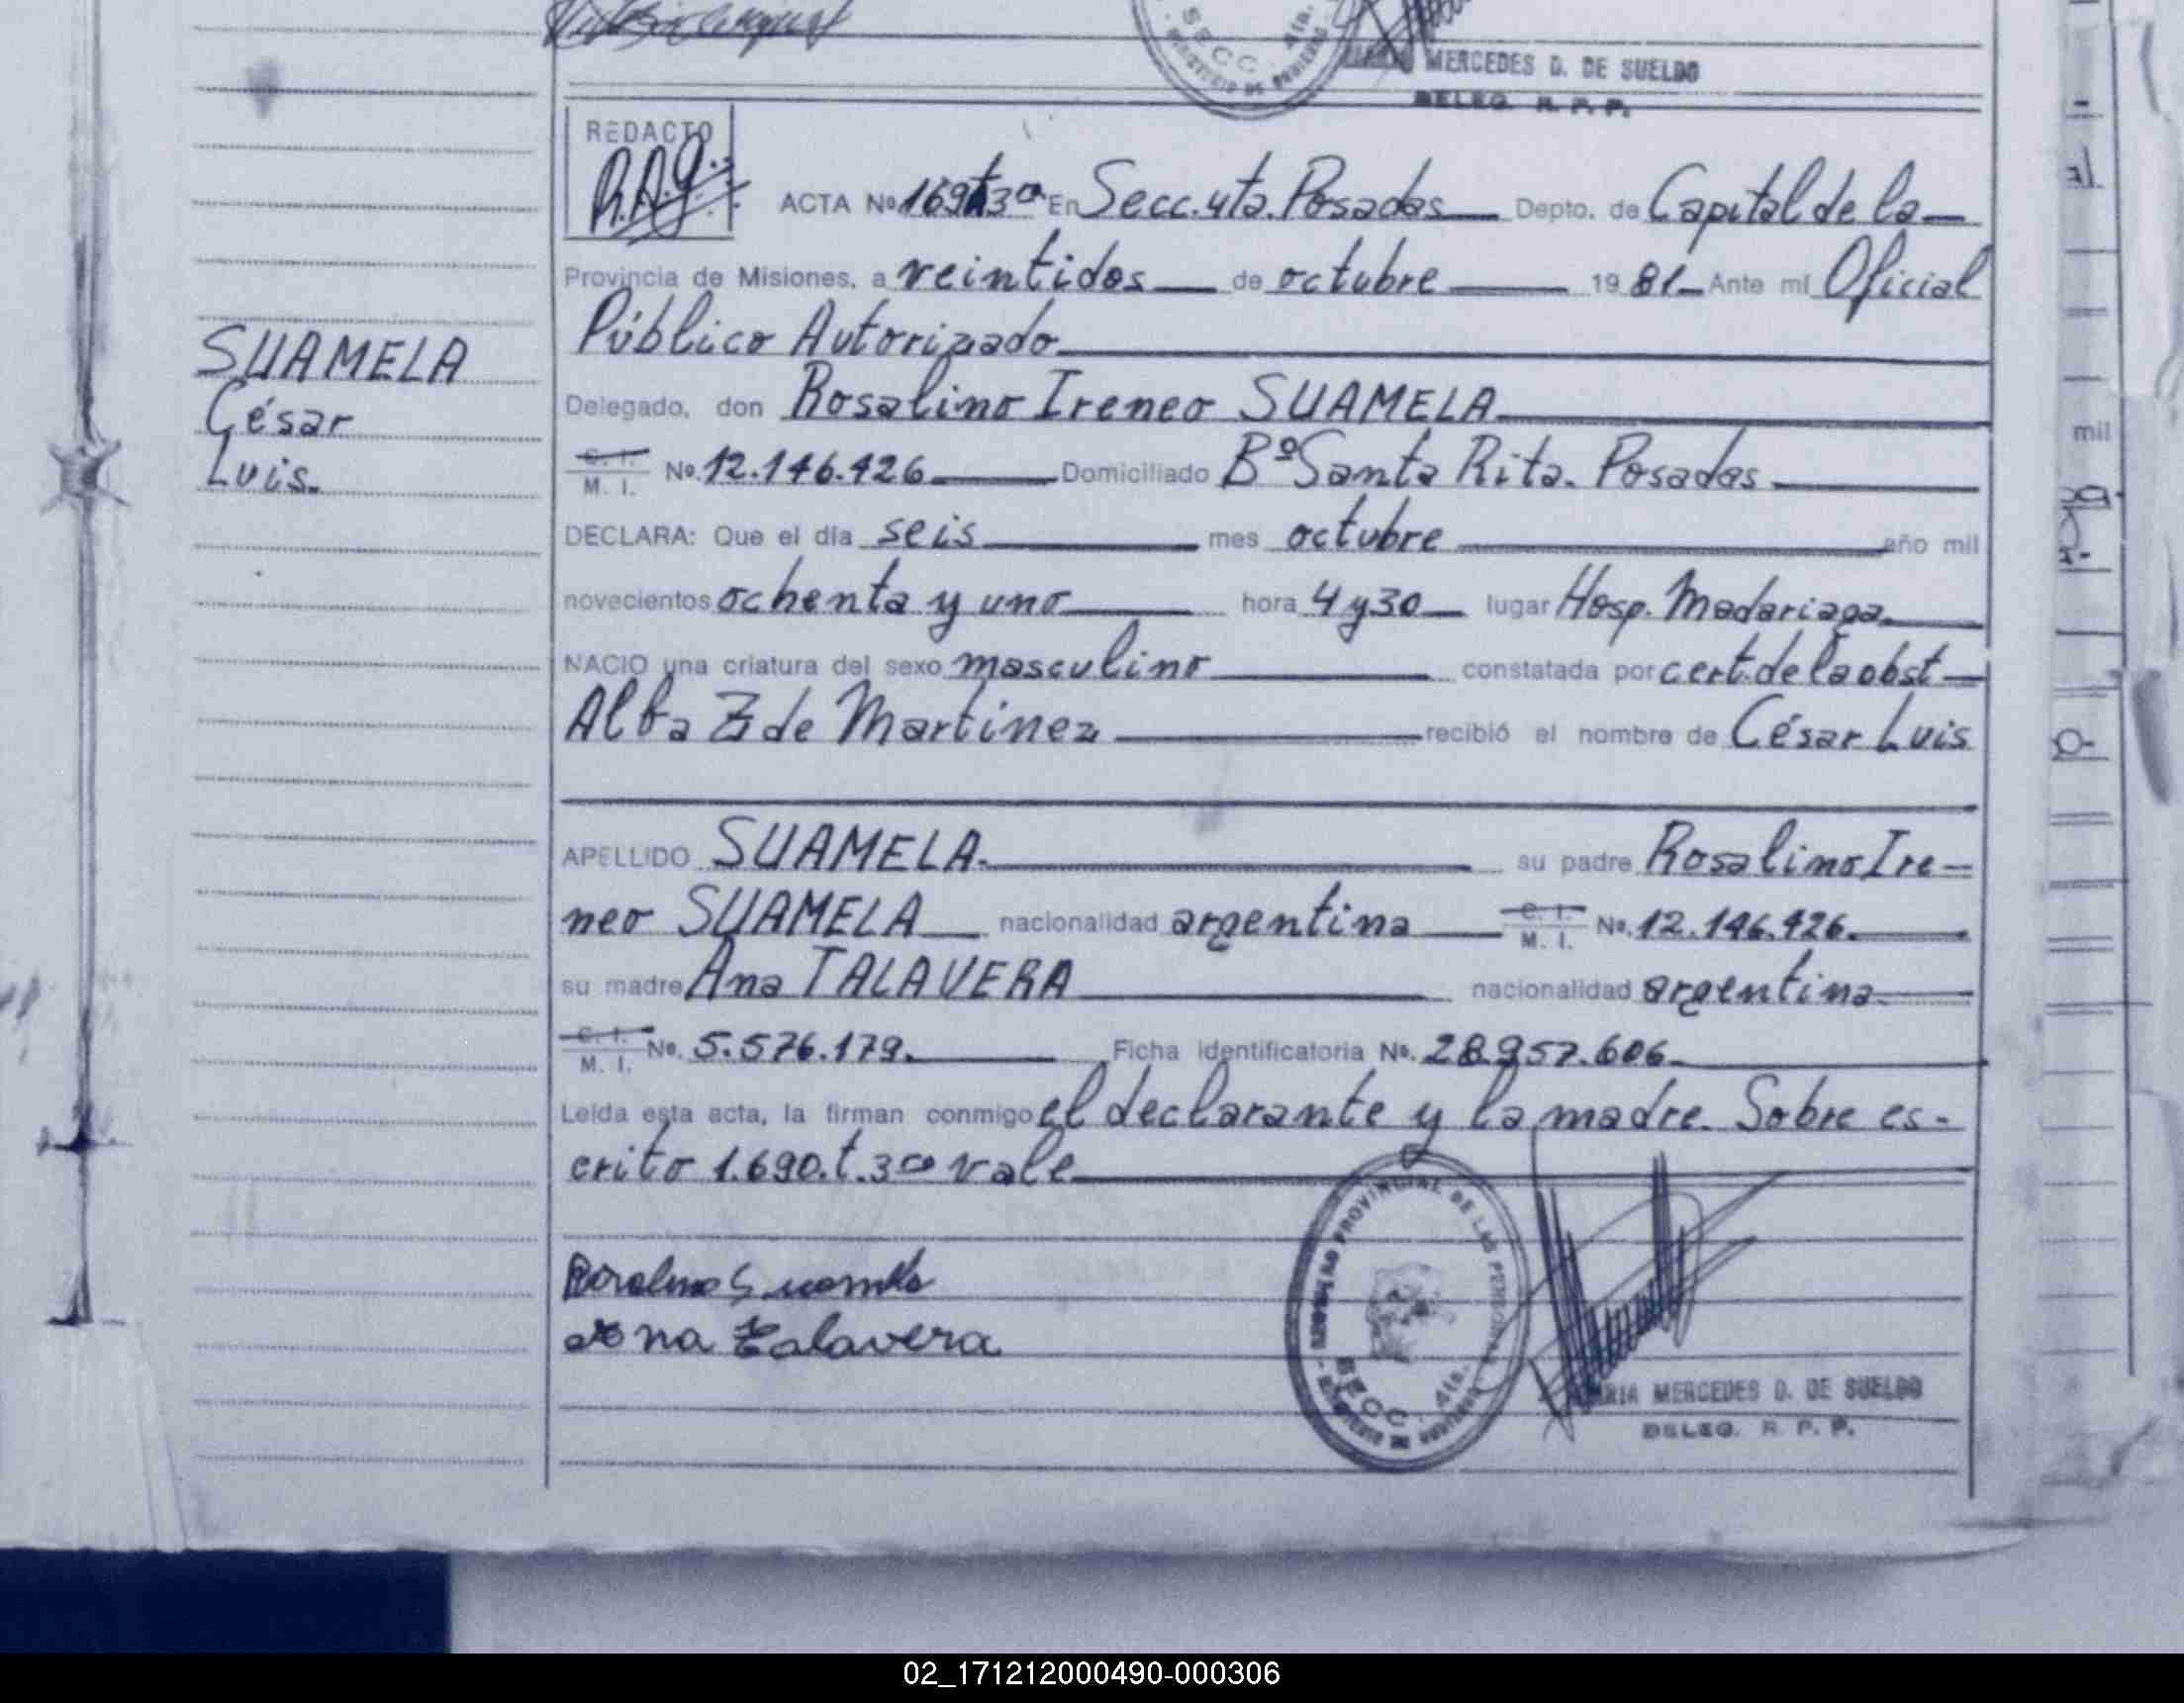 MERCEDES D. DE SUELDO
DELEG. R. P. P.
SECC. 4ta.
MINISTERIO DE GOBIERNO
REDACTO
R.A.G.
ACTA No. 1690 t 3º En Secc. 4ta. Posadas Depto. de Capital de la
Provincia de Misiones, a veintidos de octubre 1981 Ante mí Oficial
Público Autorizado
SUAMELA
César
Luis.
Delegado, don Rosalino Ireneo SUAMELA
C. I. M. I. No. 12.146.426 Domiciliado Bº Santa Rita. Posadas
DECLARA: Que el día seis mes octubre año mil
novecientos ochenta y uno hora 4 y 30 lugar Hosp. Madariaga.
NACIO una criatura del sexo masculino constatada por cert. de la obst
Alba Z de Martinez recibió el nombre de César Luis
APELLIDO SUAMELA. su padre Rosalino Ire-
neo SUAMELA nacionalidad argentina C. I. M. I. No. 12.146.426.
su madre Ana TALAVERA nacionalidad argentina.
C. I. M. I. No. 5.576.179. Ficha identificatoria No. 28.957.606
Leída esta acta, la firman conmigo el declarante y la madre. Sobre es-
crito 1.690.t.3º vale
Rosalino Suamela
Ana Talavera
PROVINCIAL DE LAS PERSONAS
SECC. 4ta.
MINISTERIO DE GOBIERNO
MARIA MERCEDES D. DE SUELDO
DELEG. R. P. P.
mil
02_171212000490-000306